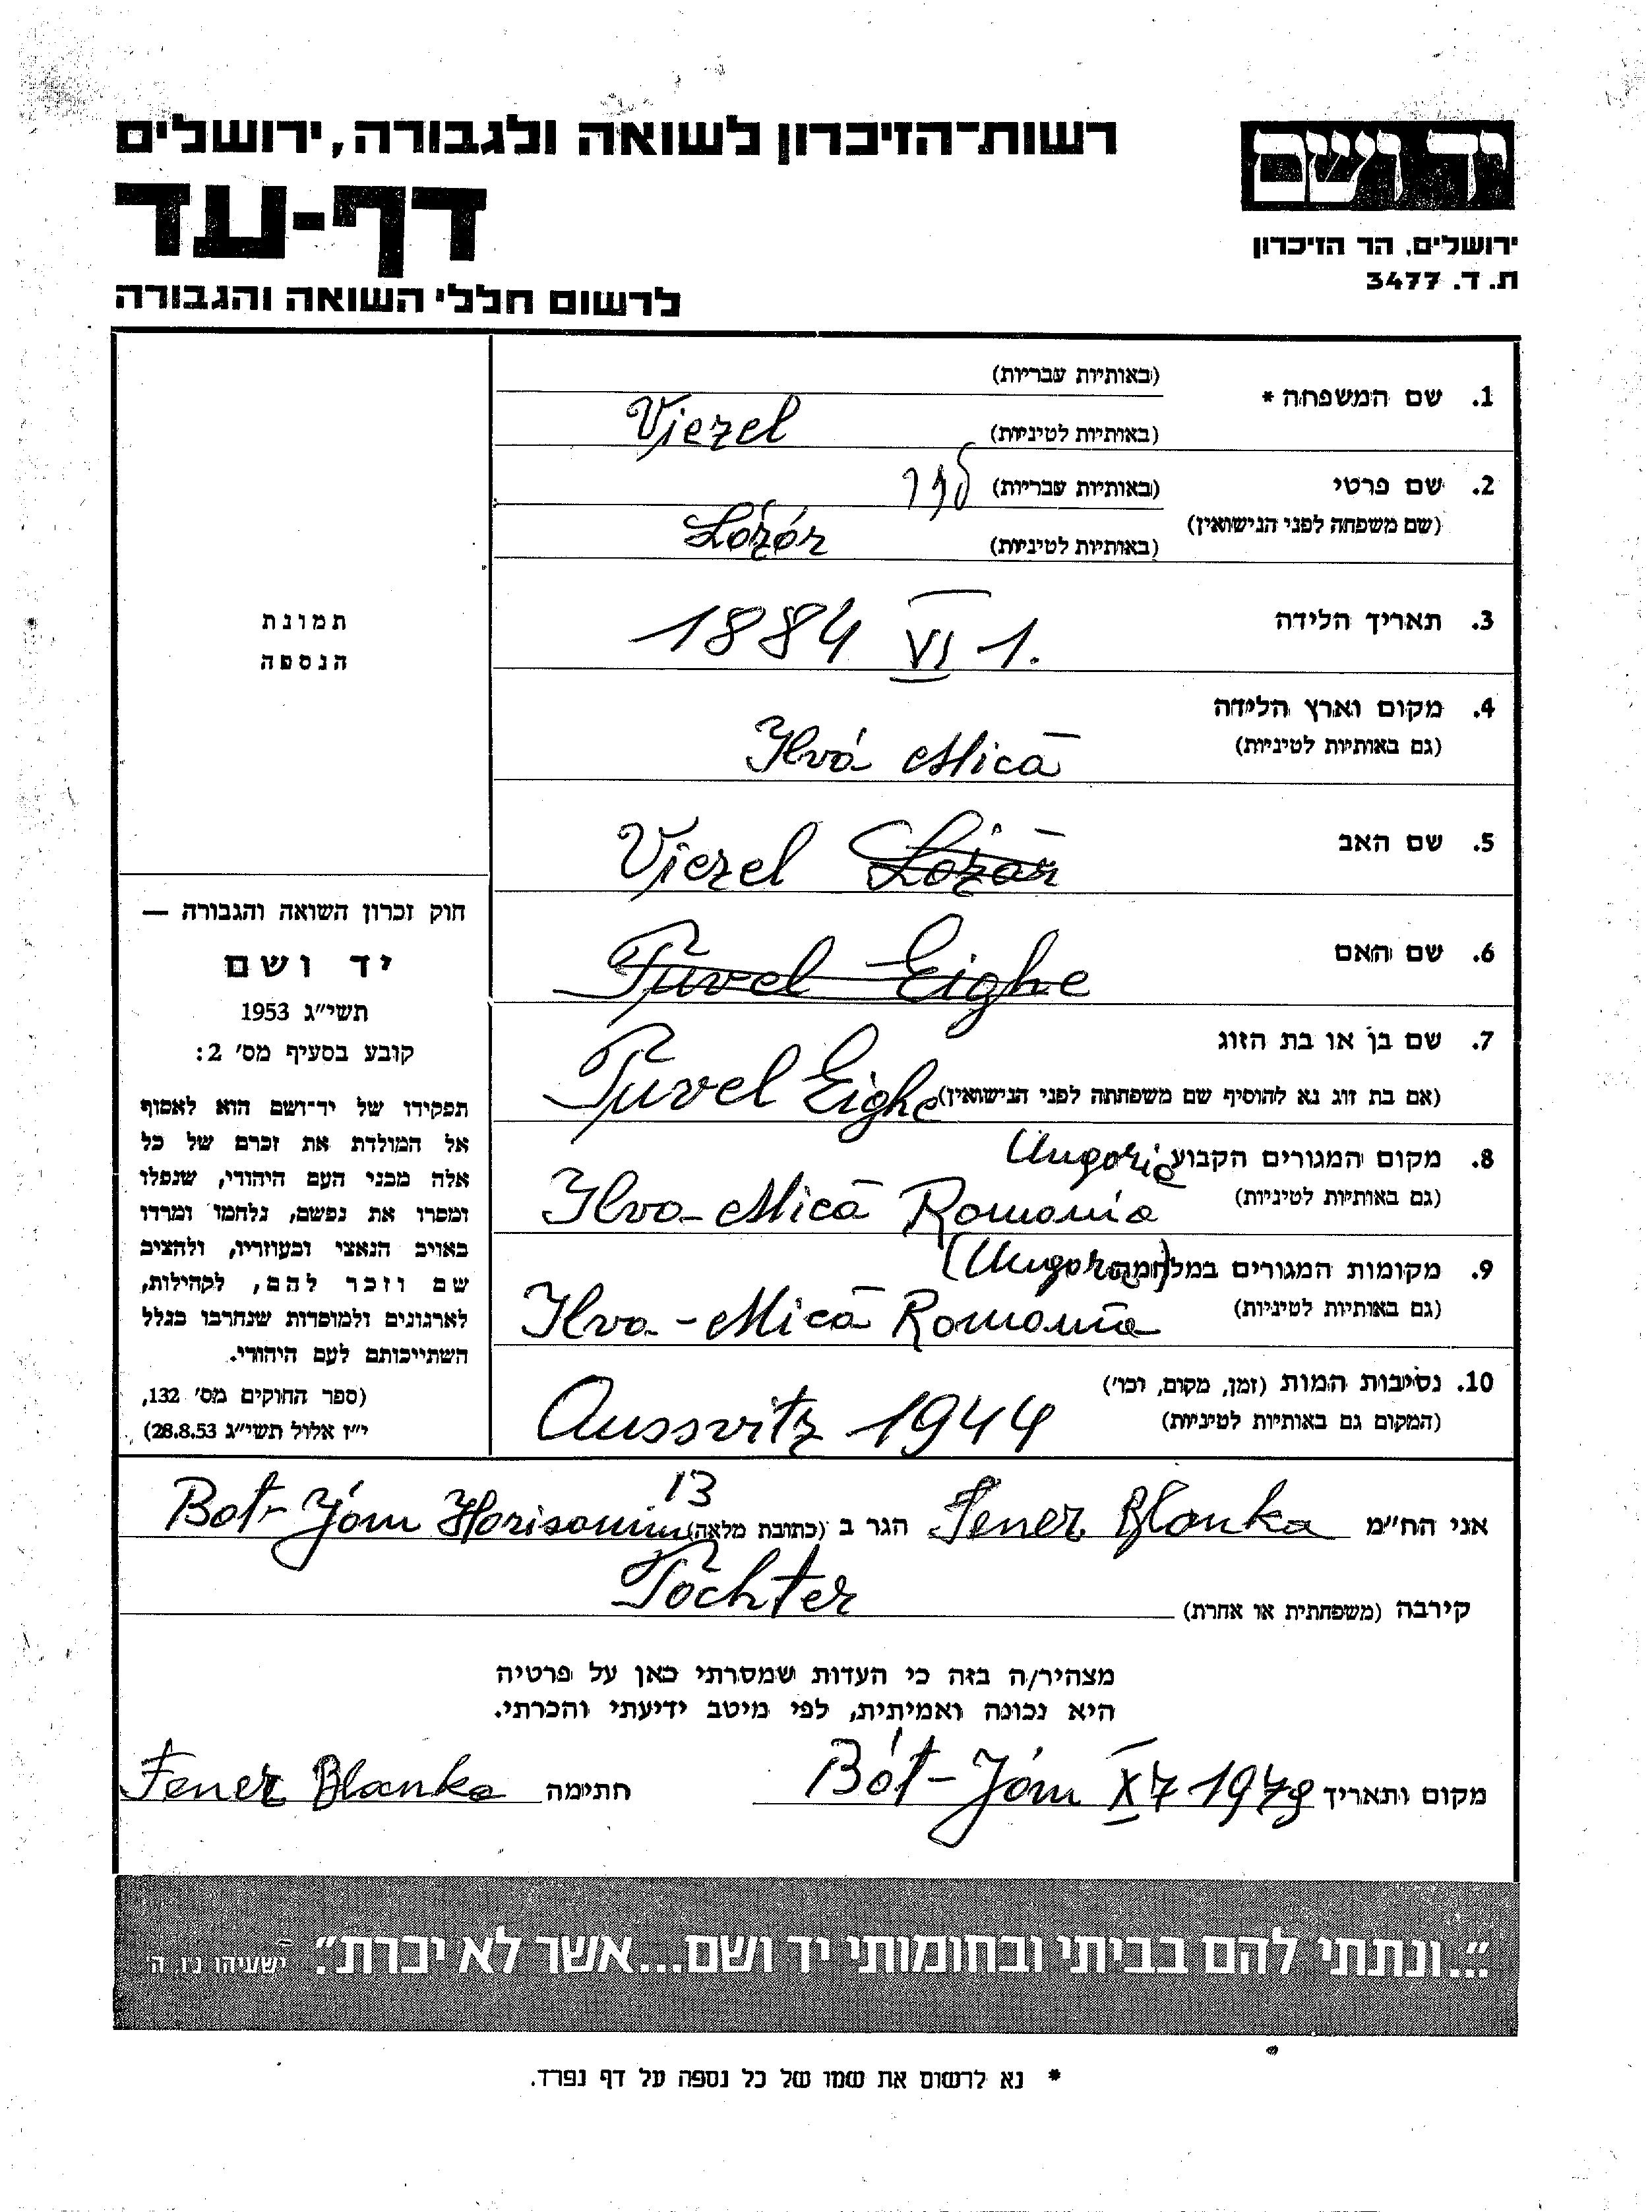 רשות־הזיכרון לשואה ולגבורה, ירושלים
יד ושם
דף-עד
ירושלים, הר הזיכרון
ת.ד. 3477
לרשום חללי השואה והגבורה
1. שם המשפחה *
(באותיות עבריות)
(באותיות לטיניות) Viezel
2. שם פרטי
(באותיות עבריות)
(שם משפחה לפני הנישואין)
(באותיות לטיניות) Lózór
3. תאריך הלידה 1884 VI 1.
4. מקום וארץ הלידה
(גם באותיות לטיניות) Ilvá Mică
5. שם האב Viezel Lozar
6. שם האם Tuvel Eighe
7. שם בן או בת הזוג
(אם בת זוג נא להוסיף שם משפחתה לפני הנישואין) Tuvel Eighe
8. מקום המגורים הקבוע Ungoria
(גם באותיות לטיניות) Ilva-Mică Romania
9. מקומות המגורים במלחמה
(גם באותיות לטיניות) Ilva-Mică Romania
10. נסיבות המות (זמן, מקום, וכו')
(המקום גם באותיות לטיניות) Aussvitz 1944
תמונת
הנספה
חוק זכרון השואה והגבורה —
יד ושם
תשי"ג 1953
קובע בסעיף מס' 2:
תפקידו של יד־ושם הוא לאסוף
אל המולדת את זכרם של כל
אלה מבני העם היהודי, שנפלו
ומסרו את נפשם, נלחמו ומרדו
באויב הנאצי ובעוזריו, ולהציב
שם וזכר להם, לקהילות,
לארגונים ולמוסדות שנחרבו בגלל
השתייכותם לעם היהודי.
(ספר החוקים מס' 132,
י"ז אלול תשי"ג 28.8.53)
אני הח"מ Fener Blanka הגר ב (כתובת מלאה) Bot-Jóm Horisonim 13
קירבה (משפחתית או אחרת) Tochter
מצהיר/ה בזה כי העדות שמסרתי כאן על פרטיה
היא נכונה ואמיתית, לפי מיטב ידיעתי והכרתי.
מקום ותאריך Bót-Jóm X 7 1979 חתימה Fener Blanka
"...ונתתי להם בביתי ובחומותי יד ושם...אשר לא יכרת". ישעיהו נ"ו, ה'
* נא לרשום את שמו של כל נספה על דף נפרד.